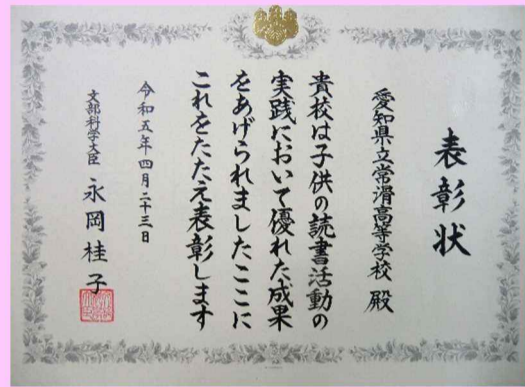 表彰状
愛知県立常滑高等学校 殿
貴校は子供の読書活動の
実践において優れた成果
をあげられましたここに
これをたたえ表彰します
令和五年四月二十三日
文部科学大臣 永岡桂子